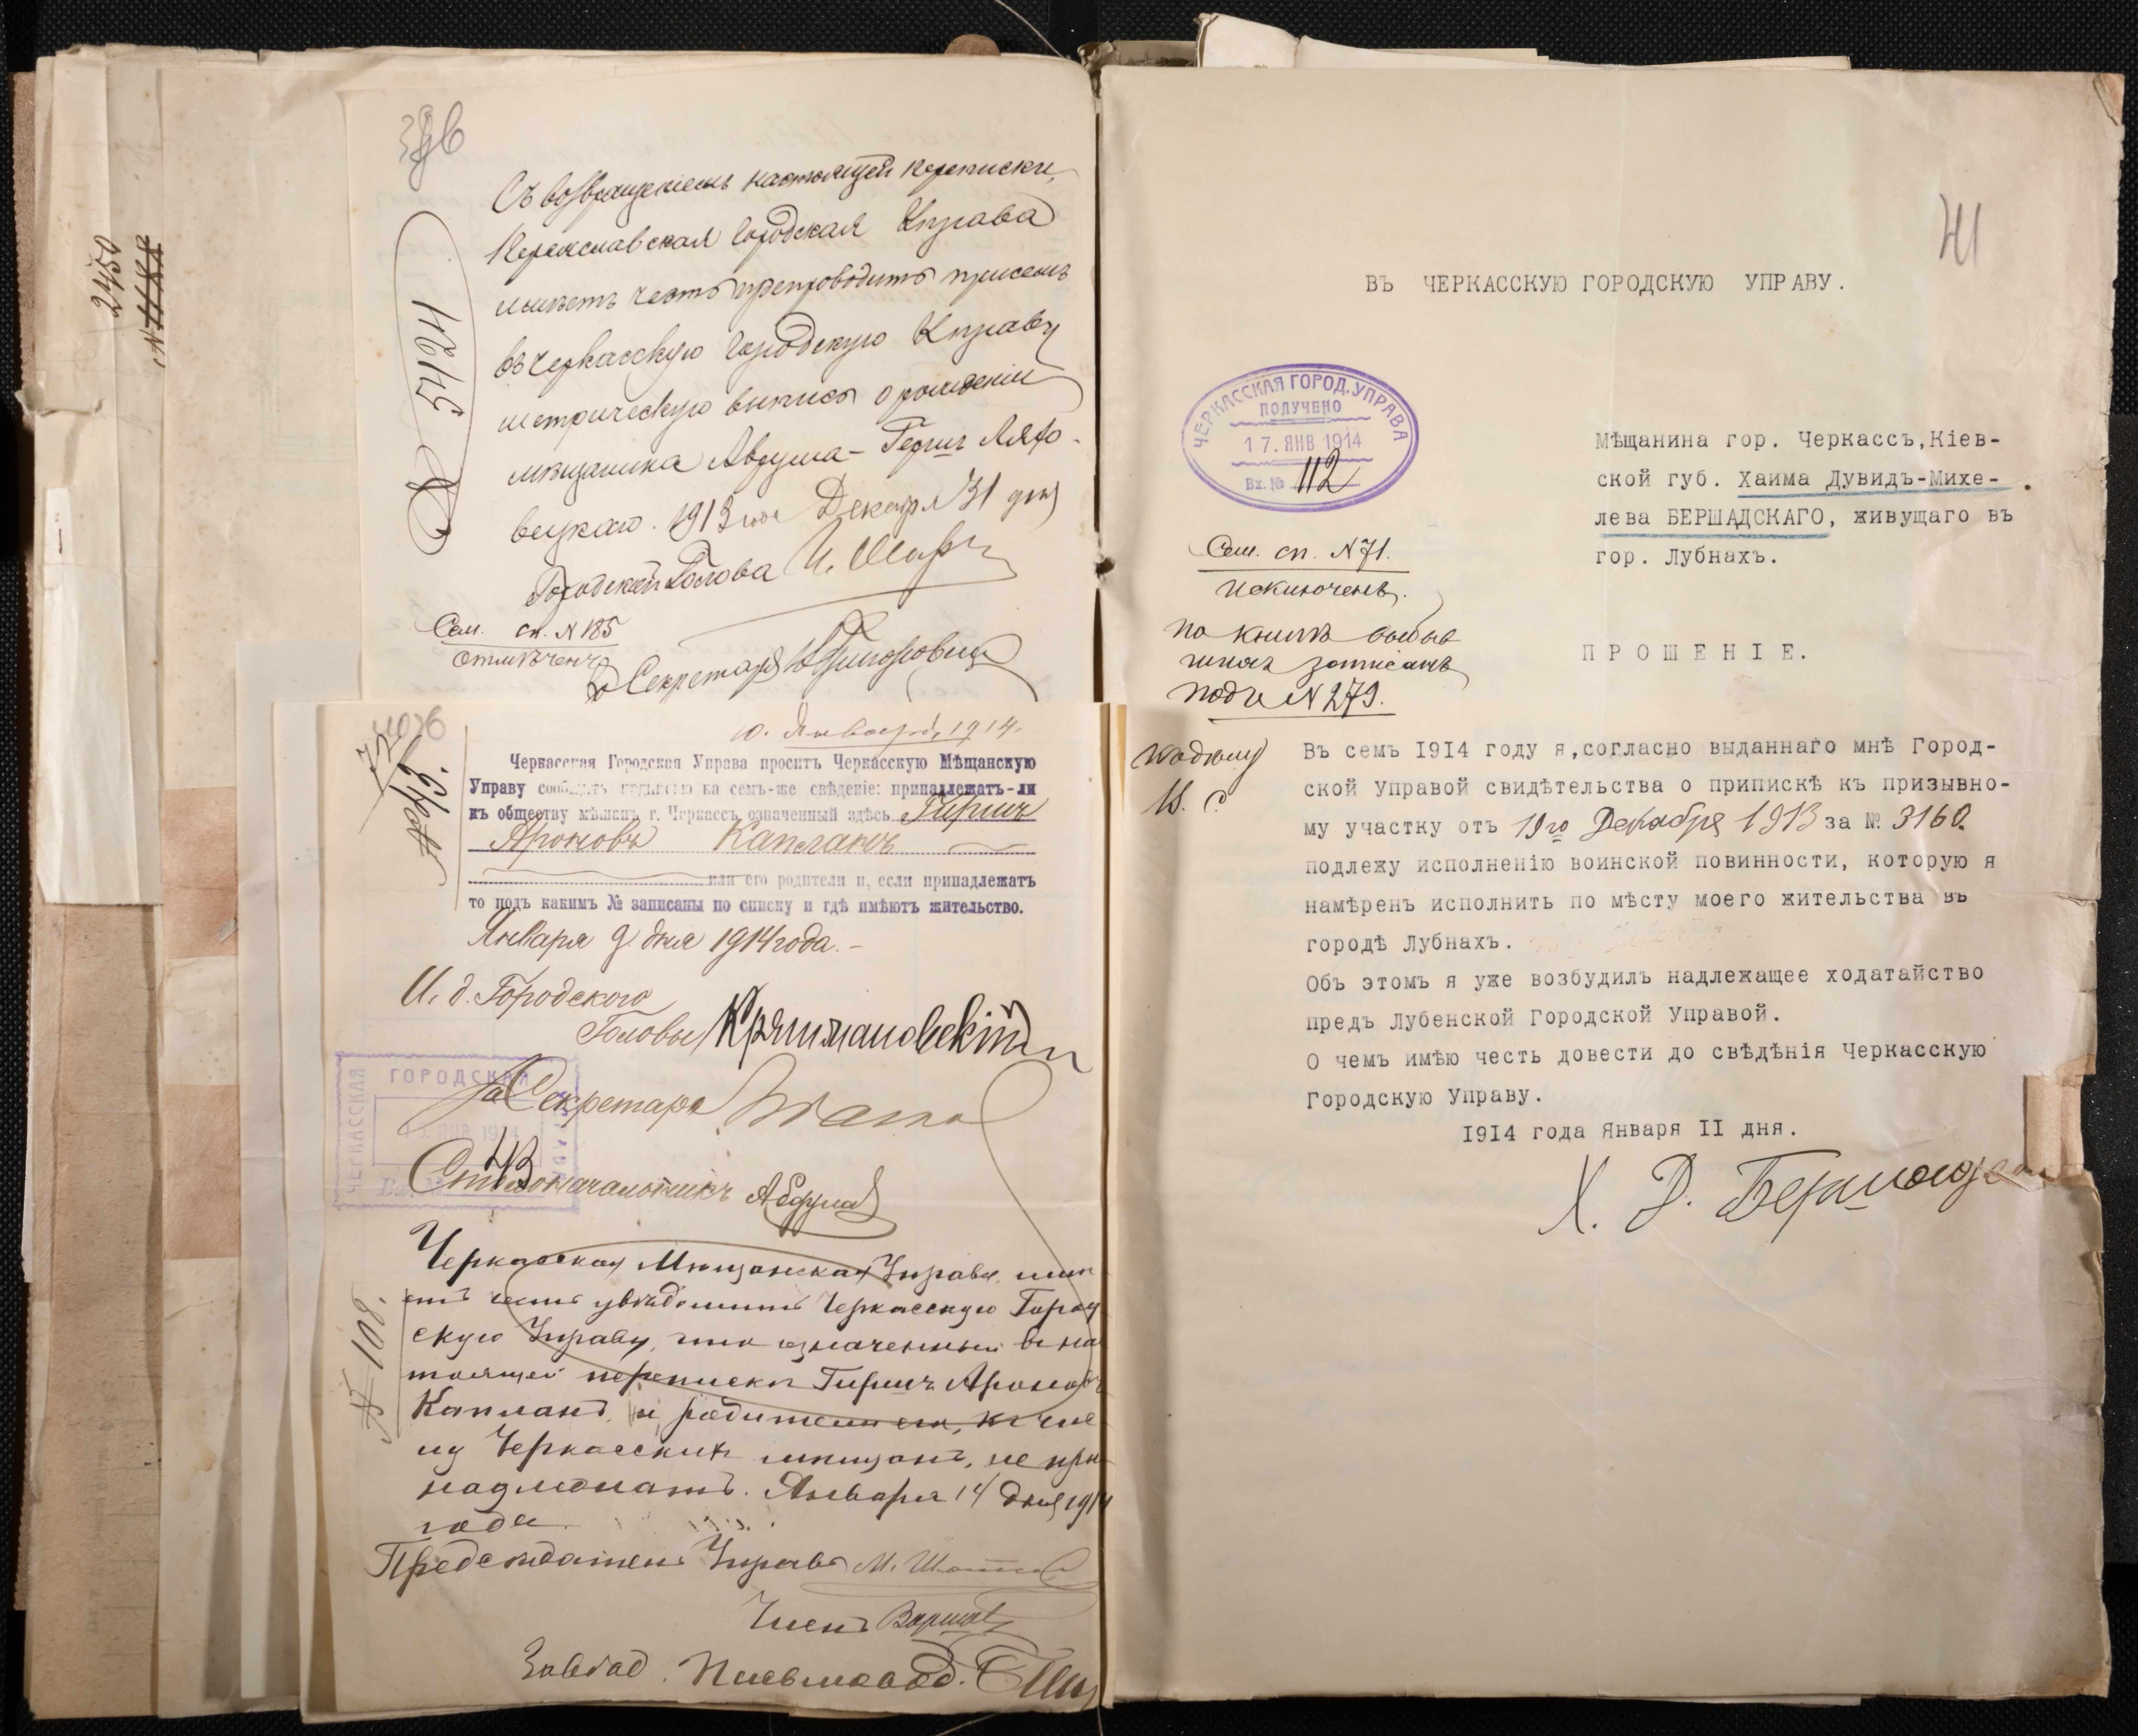 2450
Съ возвращеніемъ настоящей переписки,
Переяславская Городская Управа
имѣетъ честь препроводить при семъ
въ Черкасскую Городскую Управу
метрическую выпись о рожденіи
мѣщанина Аврума-Герша Ляхо-
вецкаго. 1913 года Декабря 31 дня
Городской Голова И.
Сем. сп. N 185
отмѣченъ
Секретаря
10. Января, 1914.
Черкасская Городская Управа проситъ Черкасскую Мѣщанскую
Управу сообщить надписью на семъ-же свѣдѣніе: принадлежатъ-ли
къ обществу мѣщанъ г. Черкассъ означенный здѣсь Гершъ
Ароновъ Капланъ
или его родители и, если принадлежатъ
то подъ какимъ № записаны по списку и гдѣ имѣютъ жительство.
Января 9 дня 1914 года.-
И. д. Городского
Головы Крышмановскій
ГОРОДСКАЯ
ЧЕРКАССКАЯ
за Секретаря
43
Столоначальникъ
N 108.
Черкасская Мѣщанская Управа имѣ
етъ честь увѣдомить Черкасскую Город
скую Управу, что означенный въ нас
тоящей перепискѣ Гершъ Ароновъ
Капланъ и родители его, къ чис
лу Черкасскихъ мѣщанъ, не при
надлежатъ. Января 14 дня 1914
года.
Предсѣдатель Управы М.
Членъ
Завѣд. Письмовод.
41
ВЪ ЧЕРКАССКУЮ ГОРОДСКУЮ УПРАВУ.
ЧЕРКАССКАЯ ГОРОД. УПРАВА
ПОЛУЧЕНО
17. ЯНВ 1914
Вх. № 112
Мѣщанина гор. Черкассъ,Кіев-
ской губ. Хаима Дувидъ-Михе-
лева БЕРШАДСКАГО, живущаго въ
гор. Лубнахъ.
Сем. сп. N 71.
Исключенъ.
по книгѣ выбыв
шихъ записанъ
подъ N 279.
ПРОШЕНІЕ.
Въ семъ 1914 году я,согласно выданнаго мнѣ Город-
ской Управой свидѣтельства о припискѣ къ призывно-
му участку отъ 19го Декабря 1913 за № 3160.
подлежу исполненію воинской повинности, которую я
намѣренъ исполнить по мѣсту моего жительства въ
городѣ Лубнахъ.
Объ этомъ я уже возбудилъ надлежащее ходатайство
предъ Лубенской Городской Управой.
О чемъ имѣю честь довести до свѣдѣнія Черкасскую
Городскую Управу.
1914 года Января II дня.
Х. Д. Бершадск